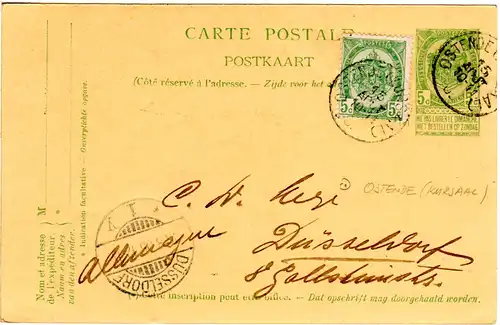 CARTE POSTALE
POSTKAART
(Côté réservé à l'adresse. – Zijde voor het
OSTENDE (KURSAAL)
5c 5c
5c
NE PAS LIVRER LE DIMANCHE
NIET BESTELLEN OP ZONDAG
C. W.
OSTENDE (KURSAAL)
Düsseldorf
Allemagne
DÜSSELDORF
inscription peut être office. – Dat opschrift mag doorgehaald worden.
Nom et adresse de l'expéditeur. M
Naam en adres van den afzender.
Indication facultative – Onverplichte opgave.